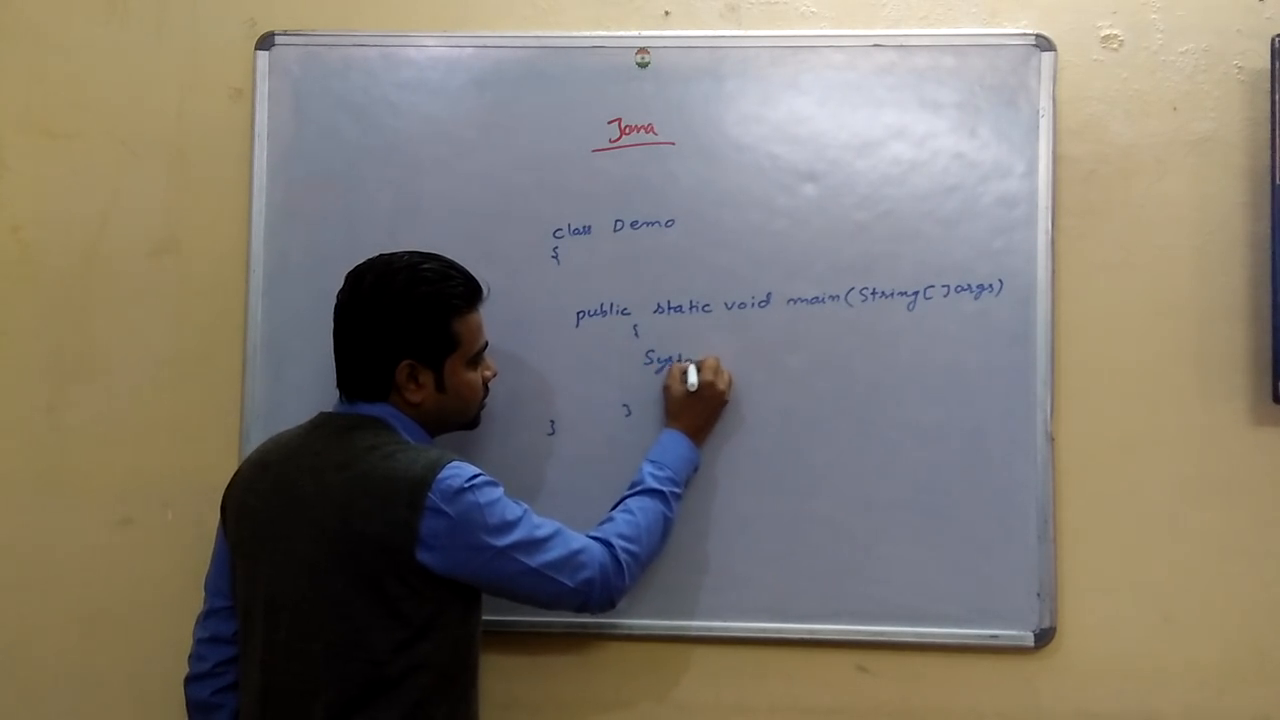 Java
class Demo
{
public static void main(String[] args)
{
Syste
}
}